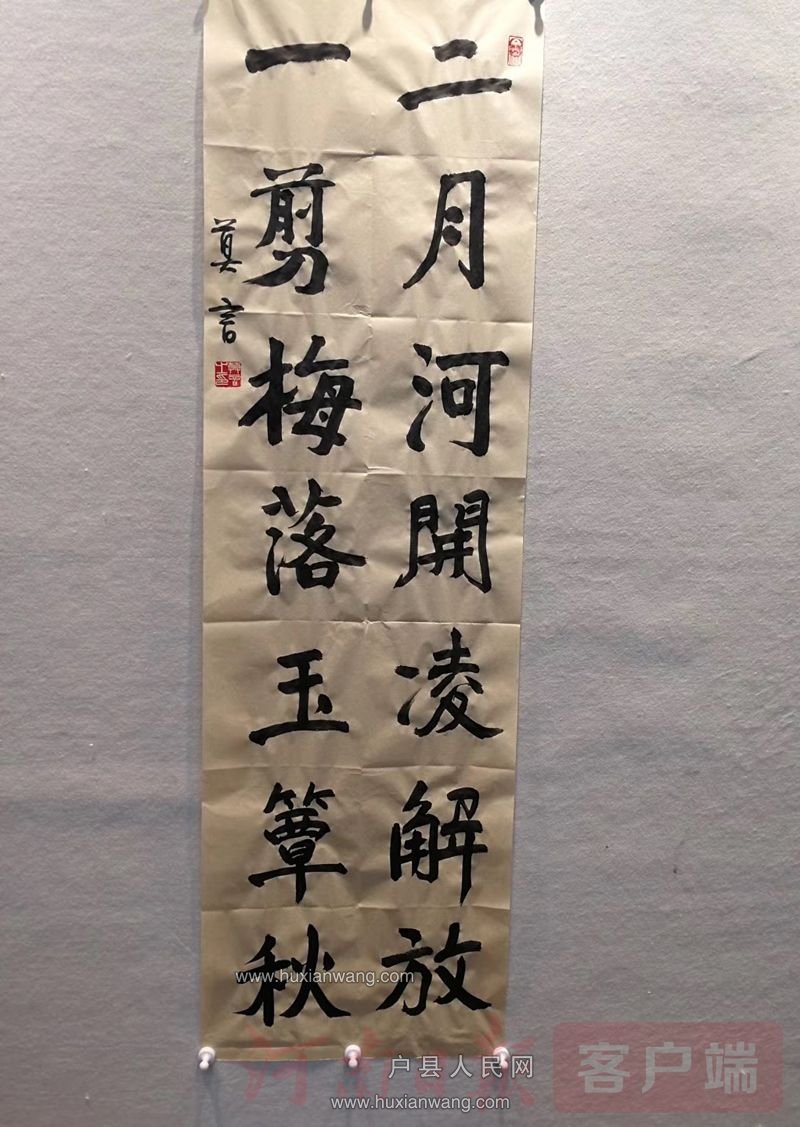 二月河開凌解放
一剪梅落玉簟秋
莫言
www.huxianwang.com
户县人民网
www.huxianwang.com
河南日报
客户端